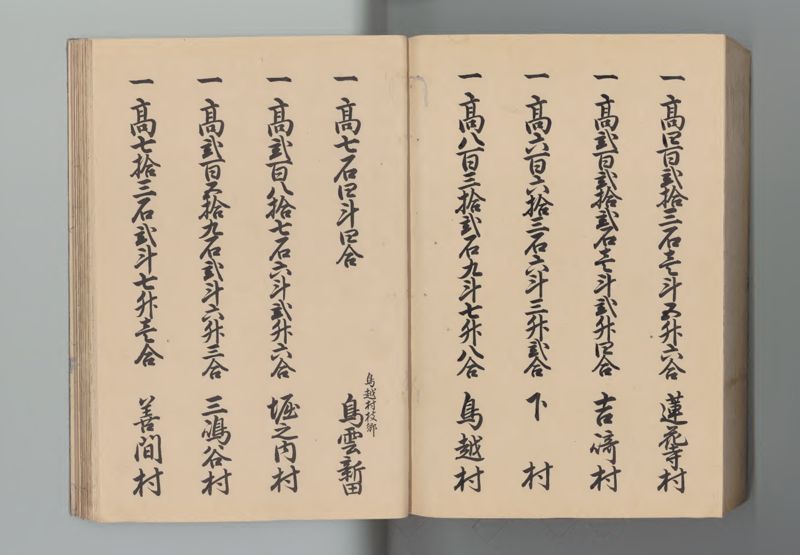 一 髙四百弐拾三石壱斗五升六合 蓮花寺村
一 髙弐百弐拾弐石壱斗弐升四合 吉﨑村
一 髙六百六拾三石六斗三升弐合 下村
一 髙八百三拾弐石九斗七升八合 鳥越村
鳥越村枝郷
一 髙七石四斗四合 鳥雲新田
一 髙弐百八拾七石六斗弐升六合 堀之内村
一 髙弐百五拾九石弐斗六升三合 三嶋谷村
一 髙七拾三石弐斗七升壱合 善間村